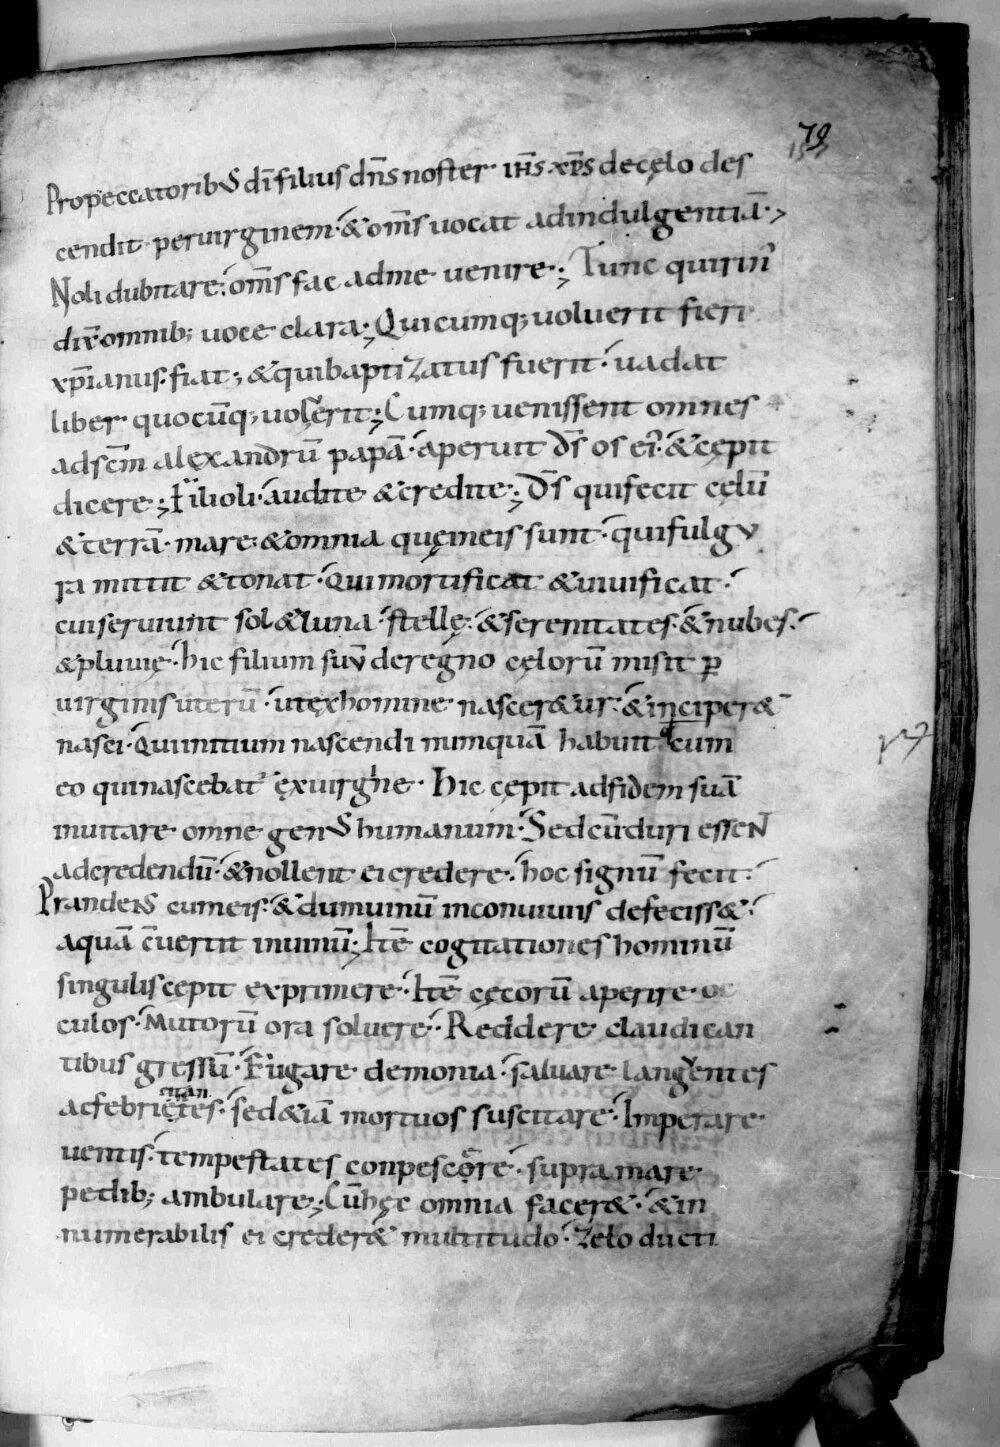 79
Propeccatorib; dī filius dn̄s noster · ih̄s · xp̄s decęlo des
cendit · peruirginem · & om̄s uocat adindulgentiā ·
Noli dubitare · om̄s fac adme uenire · Tunc quirin'
dix̄ omnib; uoce clara ; Quicumq; uoluerit fieri
xp̄ianus · fiat ; & quibaptizatus fuerit · uadat
liber quocūq; uoluerit ; Cumq; uenissent omnes
adsc̄m alexandrū papā · aperuit dn̄s os ei' · & cępit
dicere ; Filioli · audite & credite ; Dn̄s quifecit cęlū
& terrā · mare · & omnia quęineis sunt · quifulgu
ra mittit & tonat · Qui mortificat & uiuificat ·
cui seruiunt sol & luna · stellę · & serenitates · & nubes ·
& pluuię · hic filium suū deregno cęlorū misit p̱
uirginis uterū · utexhomine nascer&ur · & inciper&
nasci · Qui initium nascendi numquā habuit cum
eo quinascebat' exuirgine · Hic cepit adfidem suā
inuitare omne genus humanum · Sed cū duri essent
adcredendū · & nollent ei credere · hoc signū fecit ·
Prandens cumeis · & dumuinū inconuiuiis defeciss& ·
aquā c̄uertit inuinū ; Itē cogitationes hominū
singulis cepit exprimere · Itē cęcorū aperire oc
culos · Mutorū ora soluere · Reddere claudican
tibus gressū · Fugare demonia · saluare languentes
acfebricitantes · sed & iā mortuos suscitare · Imperare
uentis · tempestates conpescere · supra mare
pedib; ambulare ; Cū hęc omnia facer& · & in
numerabilis ei creder& multitudo · Zelo ducti